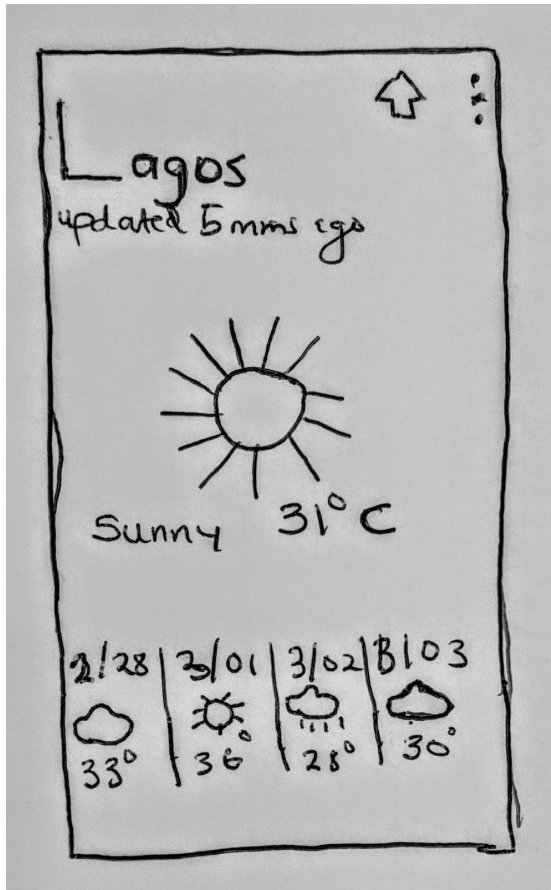 Lagos
updated 5 mms ago
Sunny 31° C
2/28 3/01 3/02 3/03
33° 36° 28° 30°